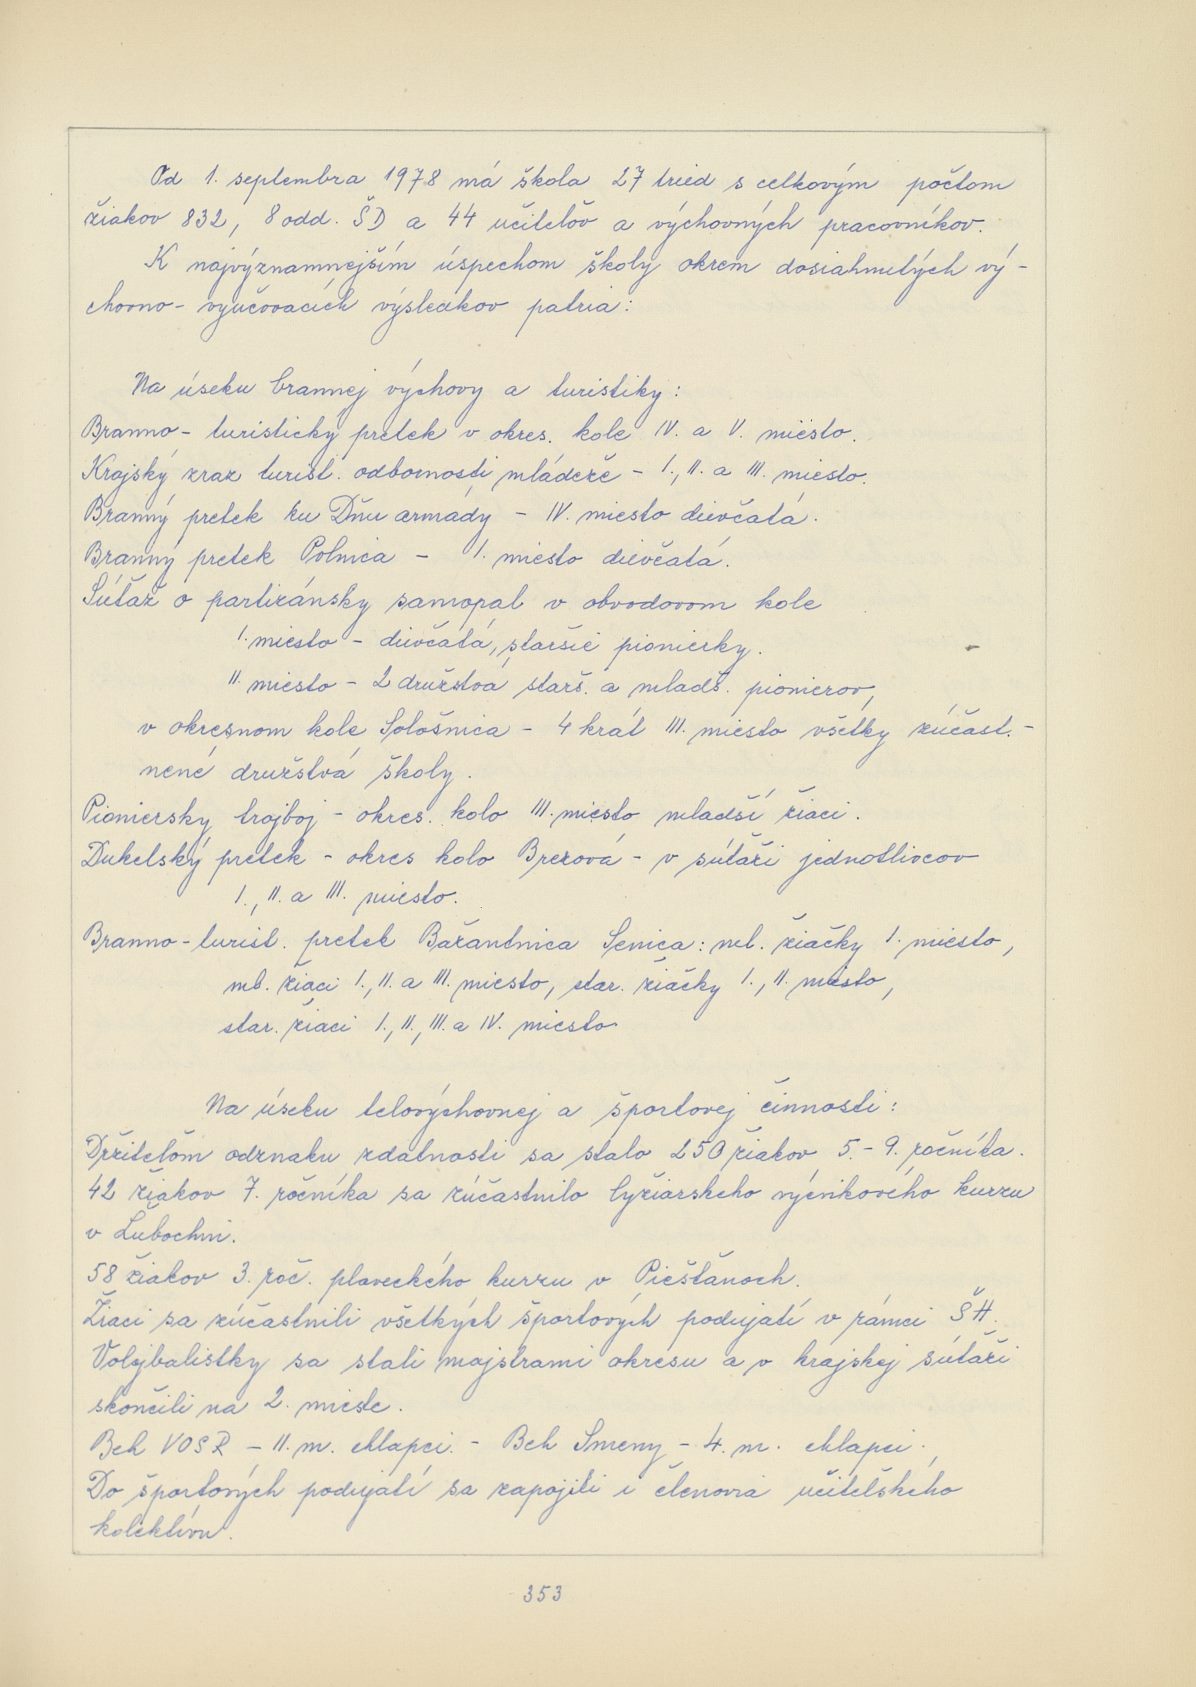 Od 1. septembra 1978 má škola 27 tried s celkovým počtom
žiakov 832, 8 odd. ŠD a 44 učiteľov a výchovných pracovníkov.
K najvýznamnejším úspechom školy okrem dosiahnutých vý-
chovno-vyučovacích výsledkov patria:
Na úseku brannej výchovy a turistiky:
Branno-turistický pretek v okres. kole IV. a V. miesto.
Krajský zraz turist. odbornosti mládeže - I., II. a III. miesto.
Branný pretek ku Dňu armády - IV. miesto dievčatá.
Branný pretek Poľnica - I. miesto dievčatá.
Súťaž o partizánsky samopal v obvodovom kole
I. miesto - dievčatá, staršie pionierky.
II. miesto - 2 družstvá starš. a mladš. pionierov,
v okresnom kole Sološnica - 4 krát III. miesto všetky zúčast.-
nené družstvá školy.
Pioniersky trojboj - okres. kolo III. miesto mladší žiaci.
Dukelský pretek - okres kolo Brezová - v súťaži jednotlivcov
I., II. a III. miesto.
Branno-turist. pretek Bažantnica Senica: ml. žiačky I. miesto,
ml. žiaci I., II. a III. miesto, star. žiačky I., II. miesto,
star. žiaci I., II., III. a IV. miesto
Na úseku telovýchovnej a športovej činnosti:
Držiteľom odznaku zdatnosti sa stalo 250 žiakov 5.-9. ročníka.
42 žiakov 7. ročníka sa zúčastnilo lyžiarskeho výcvikového kurzu
v Ľubochni.
58 žiakov 3. roč. plaveckého kurzu v Piešťanoch.
Žiaci sa zúčastnili všetkých športových podujatí v rámci ŠH.
Volejbalistky sa stali majstrami okresu a v krajskej súťaži
skončili na 2. mieste.
Beh VOSR - II. m. chlapci. - Beh Smeny - 4. m. chlapci.
Do športových podujatí sa zapojili i členovia učiteľského
kolektívu.
353